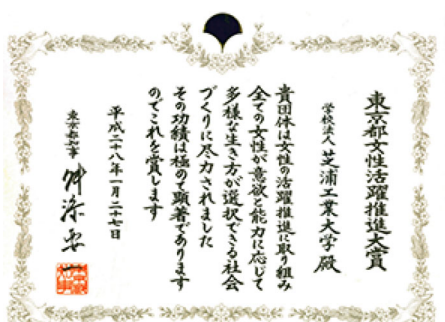 東京都女性活躍推進大賞
学校法人 芝浦工業大学 殿
貴団体は女性の活躍推進に取り組み
全ての女性が意欲と能力に応じて
多様な生き方が選択できる社会
づくりに尽力されました
その功績は極めて顕著であります
のでこれを賞します
平成二十八年一月二十七日
東京都知事 舛添要一